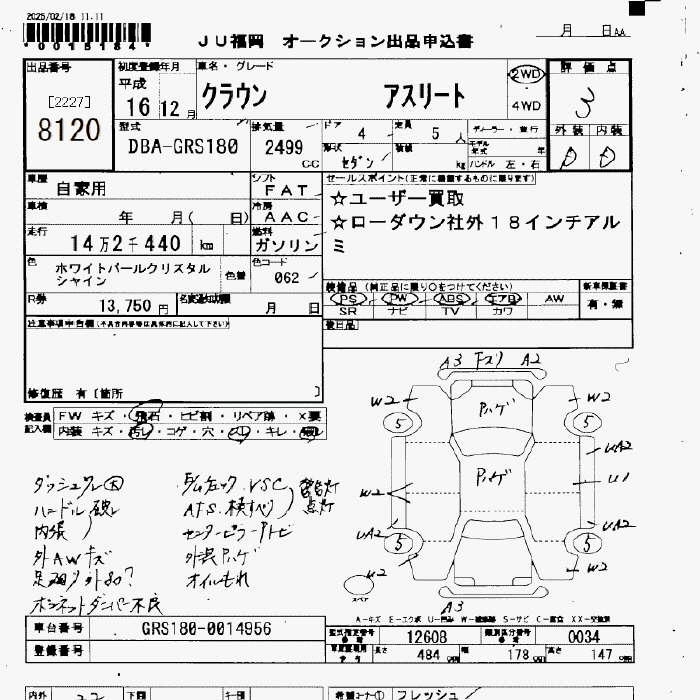 2025/02/18 11.11
*0015184*
ＪＵ福岡　オークション出品申込書
月　日AA
出品番号
[2227]
8120
初度登録年月
平成
16　12月
車名・グレード
クラウン　アスリート
2WD
4WD
評価点
3
外装　内装
D　D
型式
DBA-GRS180
排気量
2499
CC
ドア
4
定員
5 人
形状
セダン
積載
kg
ディーラー・並行
モデル年式　年
ハンドル 左・右
車歴
自家用
シフト
FAT
車検
年　月(　日)
冷房
AAC
走行
14万2千440 km
燃料
ガソリン
色
ホワイトパールクリスタル
シャイン
色替
色コード
062
R券
13,750円
名変通知期限
月　日
セールスポイント(正常に機能するものに限ります)
☆ユーザー買取
☆ローダウン社外１８インチアル
ミ
装備品 (純正品に限り○をつけてください)
PS　PW　ABS　エアB　AW
SR　ナビ　TV　カワ
新車保証書
有・無
後日品
注意事項申告欄(不具合内容等は具体的に記入して下さい)
修復歴　有 〔箇所　〕
検査員
記入欄
FW キズ・飛石・ヒビ割・リペア跡・X要
内装 キズ・汚レ・コゲ・穴・スレ・キレ・破レ
ダッシュワレ大
ハンドル破レ
内張
外AWキズ
ボンネットダンパー不良
VSC
AFS
警告灯
点灯
センターピラー
外装ハゲ
オイルもれ
A3　A2
W2　W2
5　5
ハゲ
UA2
ハゲ
U1
W2
UA2　UA2
5　5
W2　W2
スペア
A3
A-キズ　E-エクボ　U-凹み　W-補修跡　S-サビ　C-腐食　XX-交換済
車台番号
GRS180-0014956
登録番号
型式指定番号
12608
類別区分番号
0034
車両諸元用
参考
長さ
484 cm
幅
178 cm
高さ
147 cm
内外
下回
希望コーナー①
フレッシュ